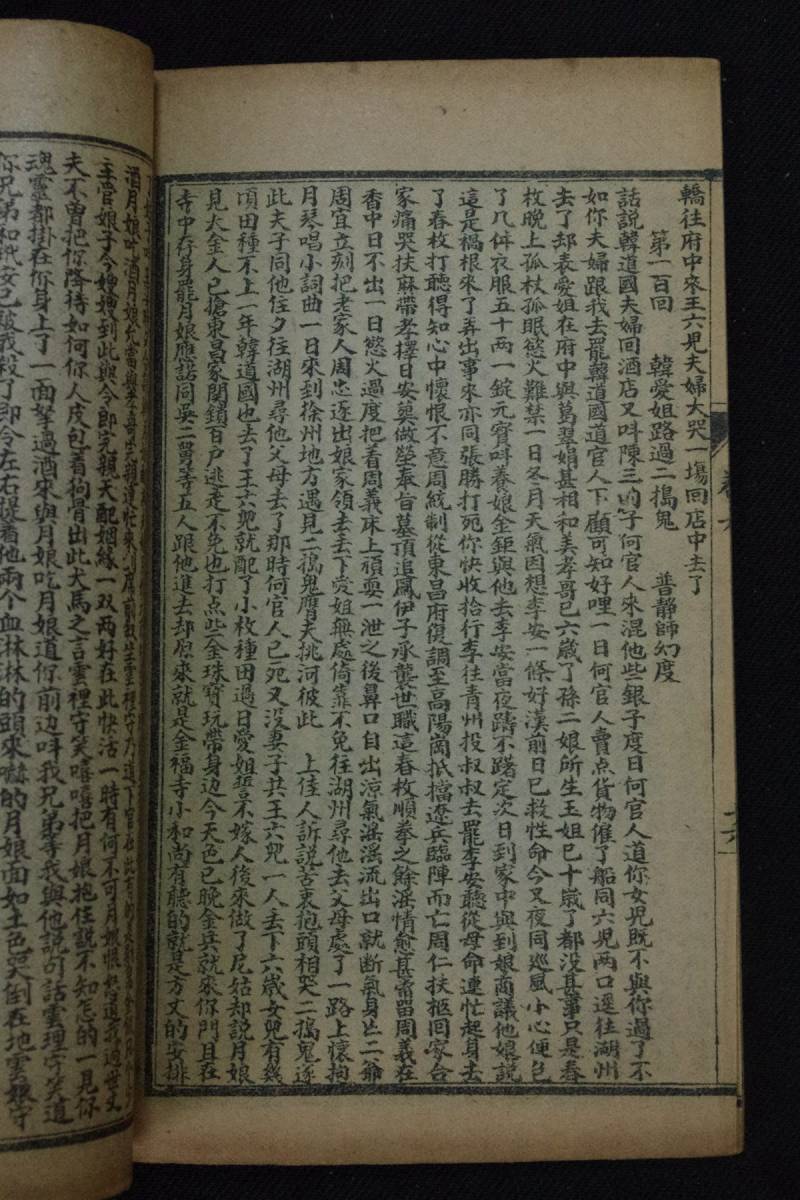 轎往府中來王六兒夫婦大哭一塲回店中去了
第一百回　韓愛姐路過二搗鬼　普静師幻度
話說韓道國夫婦回酒店又呌陳三的子何官人來混他些銀子度日何官人道你女兒既不與你過了不
如你夫婦跟我去罷韓道國道官人下顧可知好哩一日何官人賣点貨物催了船同六兒两口逕往湖州
去了却表愛姐在府中與葛翠娟甚相和美孝哥已六歲了孫二娘所生玉姐已十歲了都没甚事只是春
枚晚上孤枕孤眠慾火難禁一日冬月天氣因想李安一條好漢前日已救性命今又夜同巡風小心便包
了几件衣服五十两一錠元寳呌養娘金鉅與他去李安當夜躊不躇定次日到家中與到娘商議他娘說
這是禍根來了弄出事來亦同張勝打死你快收拾行李往青州投叔叔去罷李安聽從母命連忙起身去
了春枚打聽得知心中懷恨不意周統制從東昌府復調至高陽崗抵擋遼兵臨陣而亡周仁扶柩囘家合
家痛哭扶麻帶孝擇日安𦵏做塋奉旨墓頂追鳳伊子承襲世職這春枚順拳之餘滛情愈甚畱留周義在
香中日不出一日慾火過度把看周義床上頑耍一泄之後鼻口自出凉氣滛滛流出口就断氣身亡二爺
周宜立刻把老家人周忠逐出娘家領去丢下愛姐無處倚靠不免往湖州尋他去父母處了一路上懷抱
月琴唱小詞曲一日來到徐州地方遇見二搗鬼膺夫挑河彼此　上佳人訴説苦衷抱頭相哭二搗鬼逐
此夫子同他住夕往湖州尋他父母去了那時何官人已死又没妻子共王六兒一人丢下六歲女兒有幾
頃田種不上一年韓道國也去了王六兒就配了小枚種田過日愛姐誓不嫁人後來做了尼姑却說月娘
見大金人已搶東昌家関鎖百户逃走不免也打点些金珠寳玩帶身边今天色已晚金兵就來你門且在
寺中存身罷月娘應諾同吳二舅等五人跟他進去却原來就是金福寺小和尚有聽的就是方丈的安排
酒月娘
主管娘子今嫂嫂到此與令郎完親天配姻緣一双两好在此快活一時有何不可月娘
夫不曾把你降待如何你人皮包着狗骨出此犬馬之言雲裡守笑嘻嘻把月娘抱住説不知怎的一見你
魂靈都掛在你身上了一面拏過酒來與月娘吃月娘道你前边呌我兄弟等我與他説句話雲理守笑道
你兄弟和玳安已被我殺了即令左右提着他兩个血淋淋的頭來嚇的月娘面如土色哭倒在地雲娘守